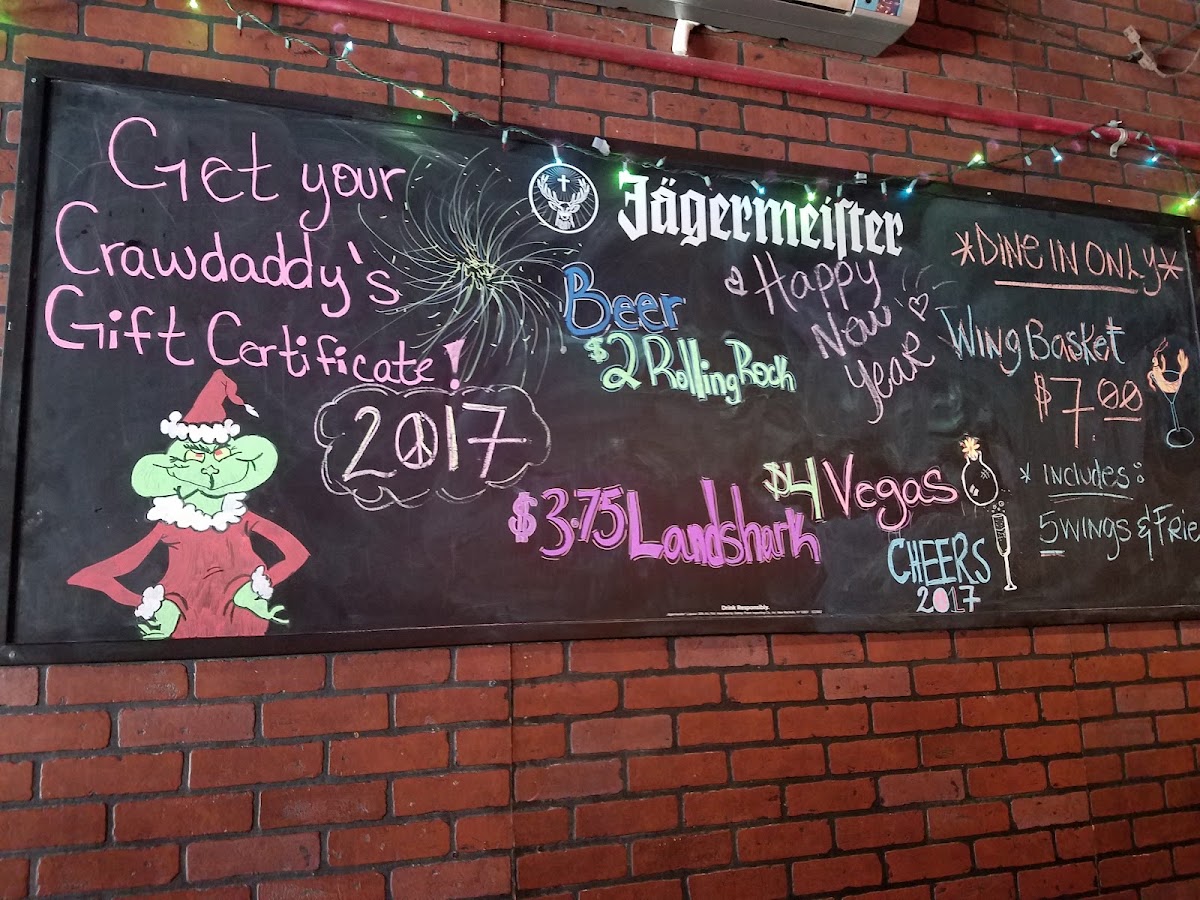 Get your
Crawdaddy's
Gift Certificate!
2017
Jägermeister
Beer
$2 Rolling Rock
$3.75 Landshark
$4 Vegas
Happy
New
Year
CHEERS
2017
*DINE IN ONLY*
Wing Basket
$7.00
* INCLUDES:
5 WINGS & FRIE
Drink Responsibly.